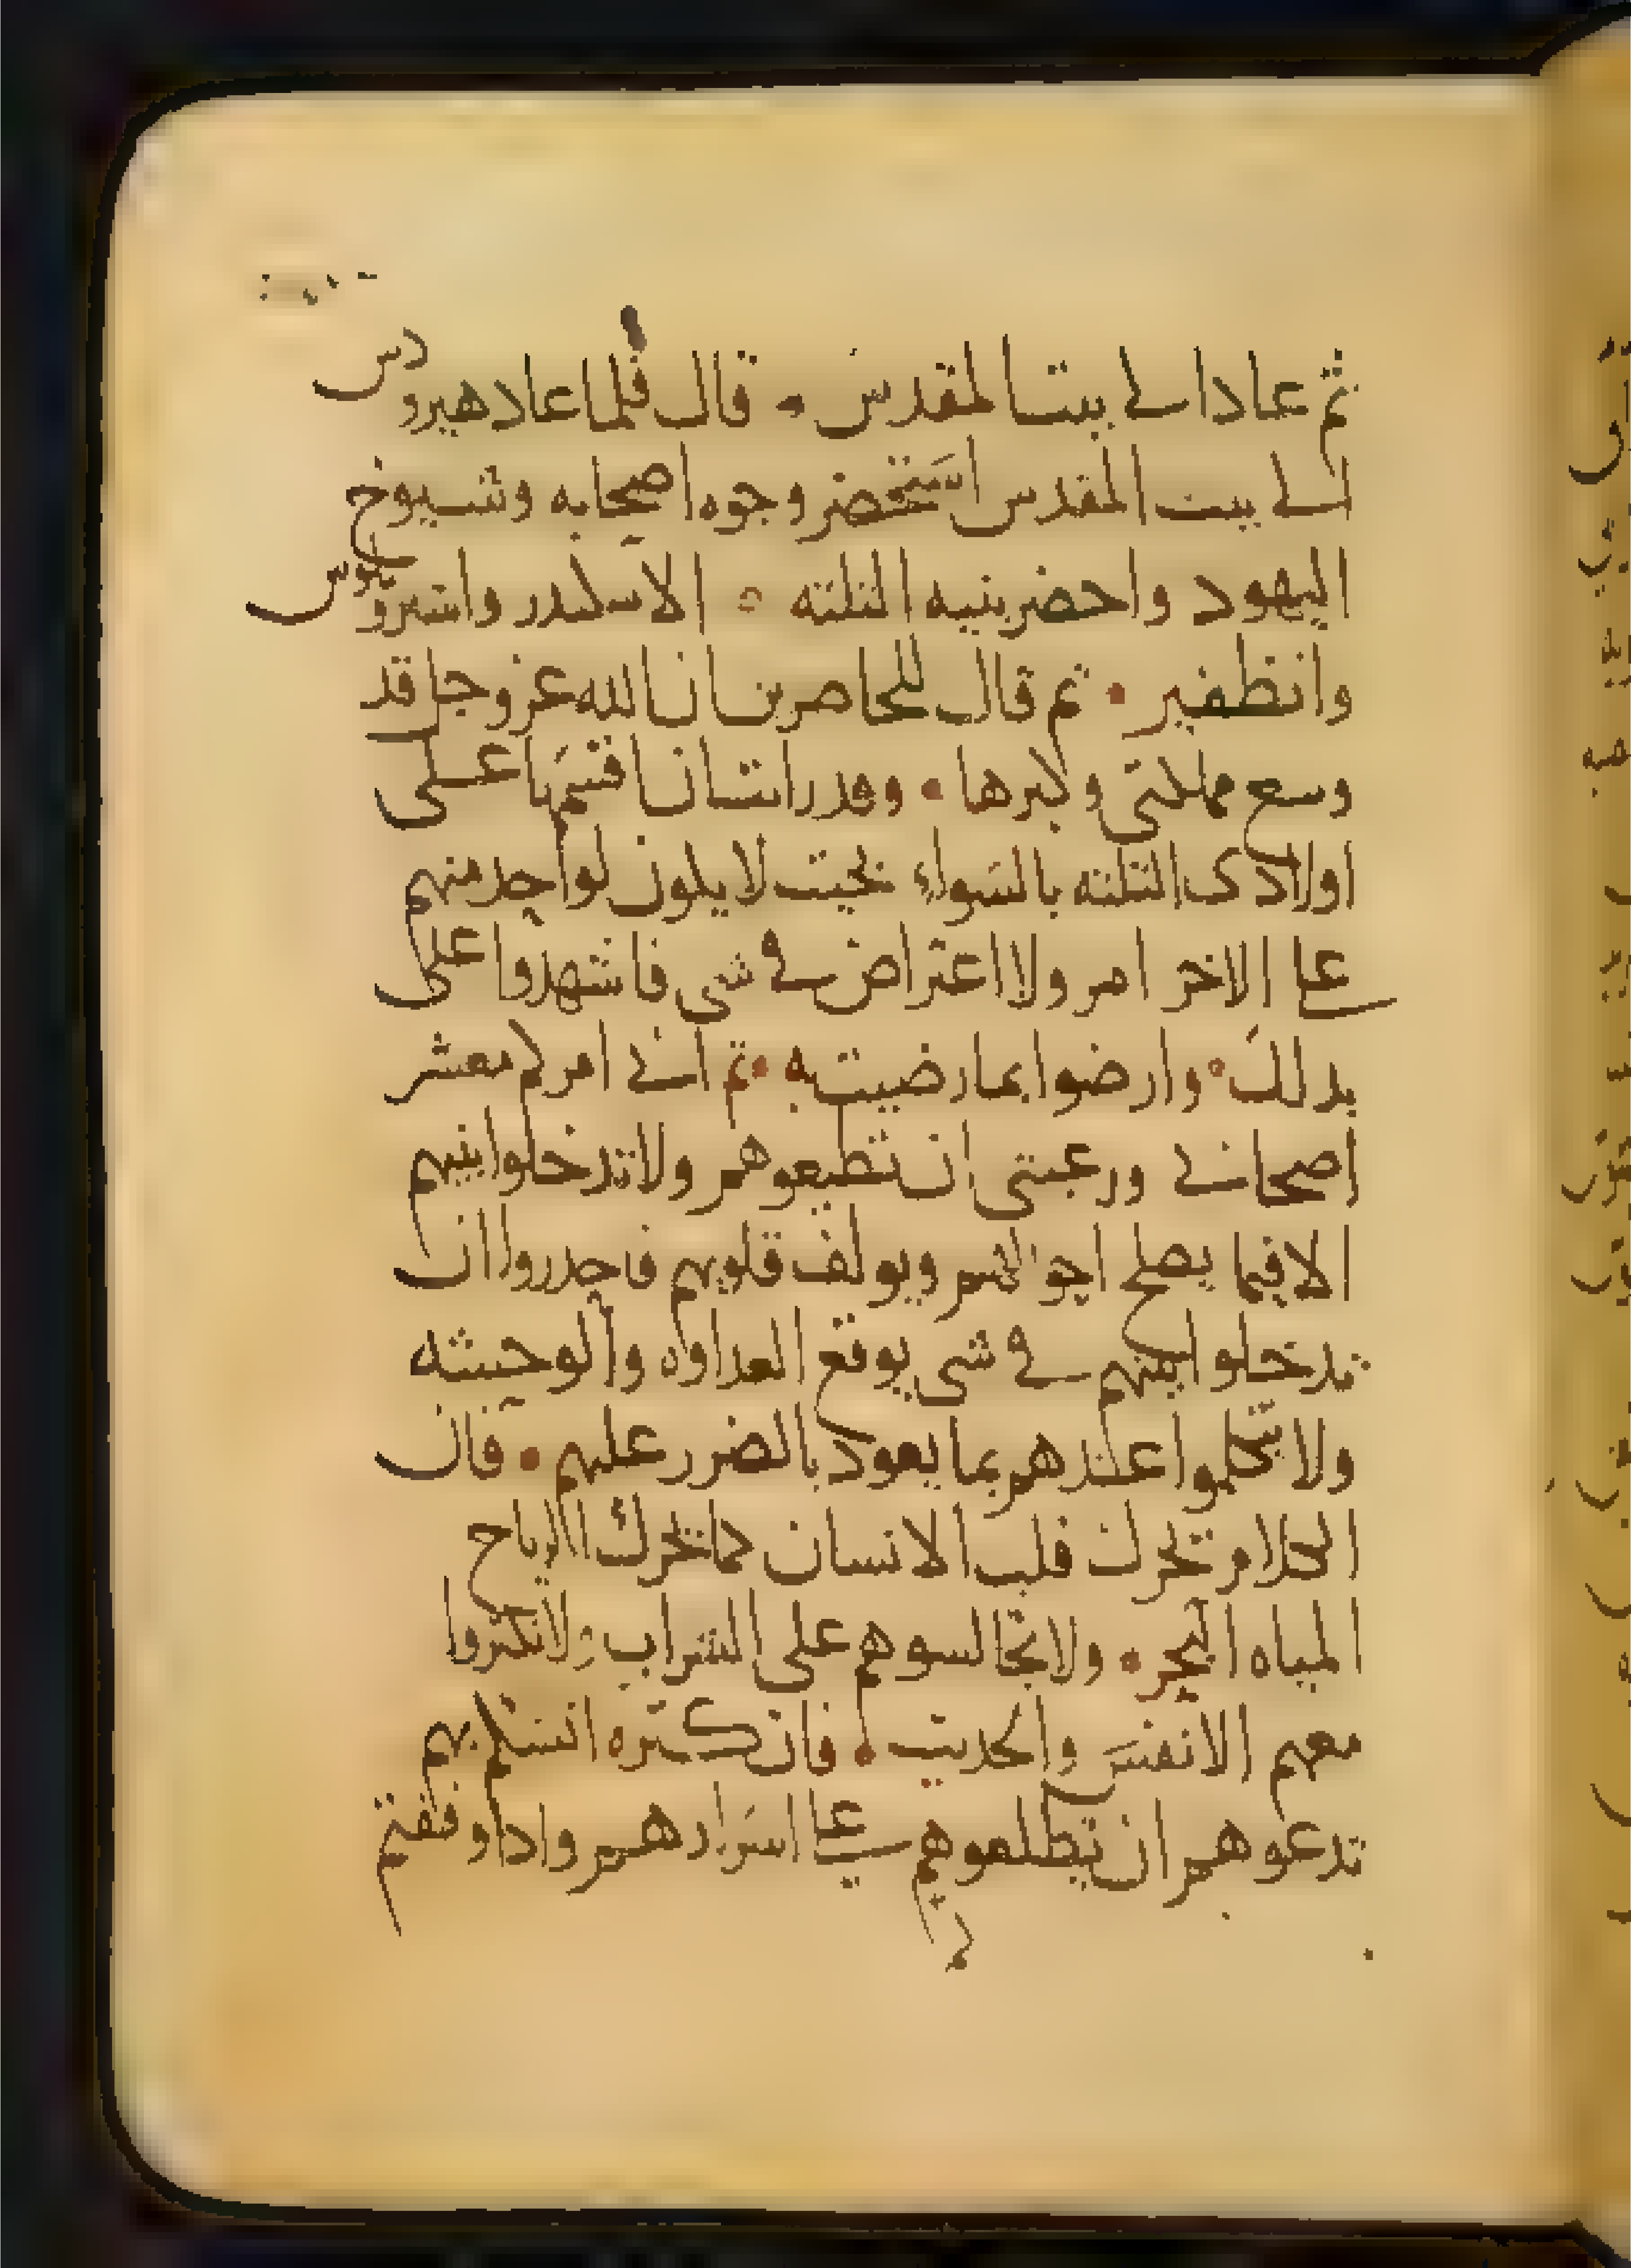 ثم عاد الى بيت المقدس • قال فلما عاد هيرودس
الى بيت المقدس استحضر وجوه اصحابه وشيوخ
اليهود واحضر بنيه الثلثه ○ الاسكندر وارستروبلوس
وانطفير • ثم قال للحاضرين ان الله عز وجل قد
وسع مملكتى وكبرها • وقد رايت ان اقسمها على
اولادى الثلثه بالسواء بحيث لا يكون لواحد منهم
على الاخر امر ولا اعتراض فى شى فاشهدوا على
بدلك • وارضوا بما رضيت به • ثم انى امركم معشر
اصحابى ورعيتى ان تطيعوهم ولا تدخلوا بينهم
الا فيما يصلح احوالهم ويولف قلوبهم فاحدروا ان
تدخلوا بينهم فى شى يوقع العداوه والوحشه
ولا تتكلموا عندهم بما يعود بالضرر عليهم • فان
الكلام يحرك قلب الانسان كما تحرك الرياح
المياه البحر • ولا تجالسوهم على الشراب ولا تكثروا
معهم الانس والحديث • فان كثره انسكم بهم
تدعوهم ان يطلعوكم على اسرارهم وادا وقفتم